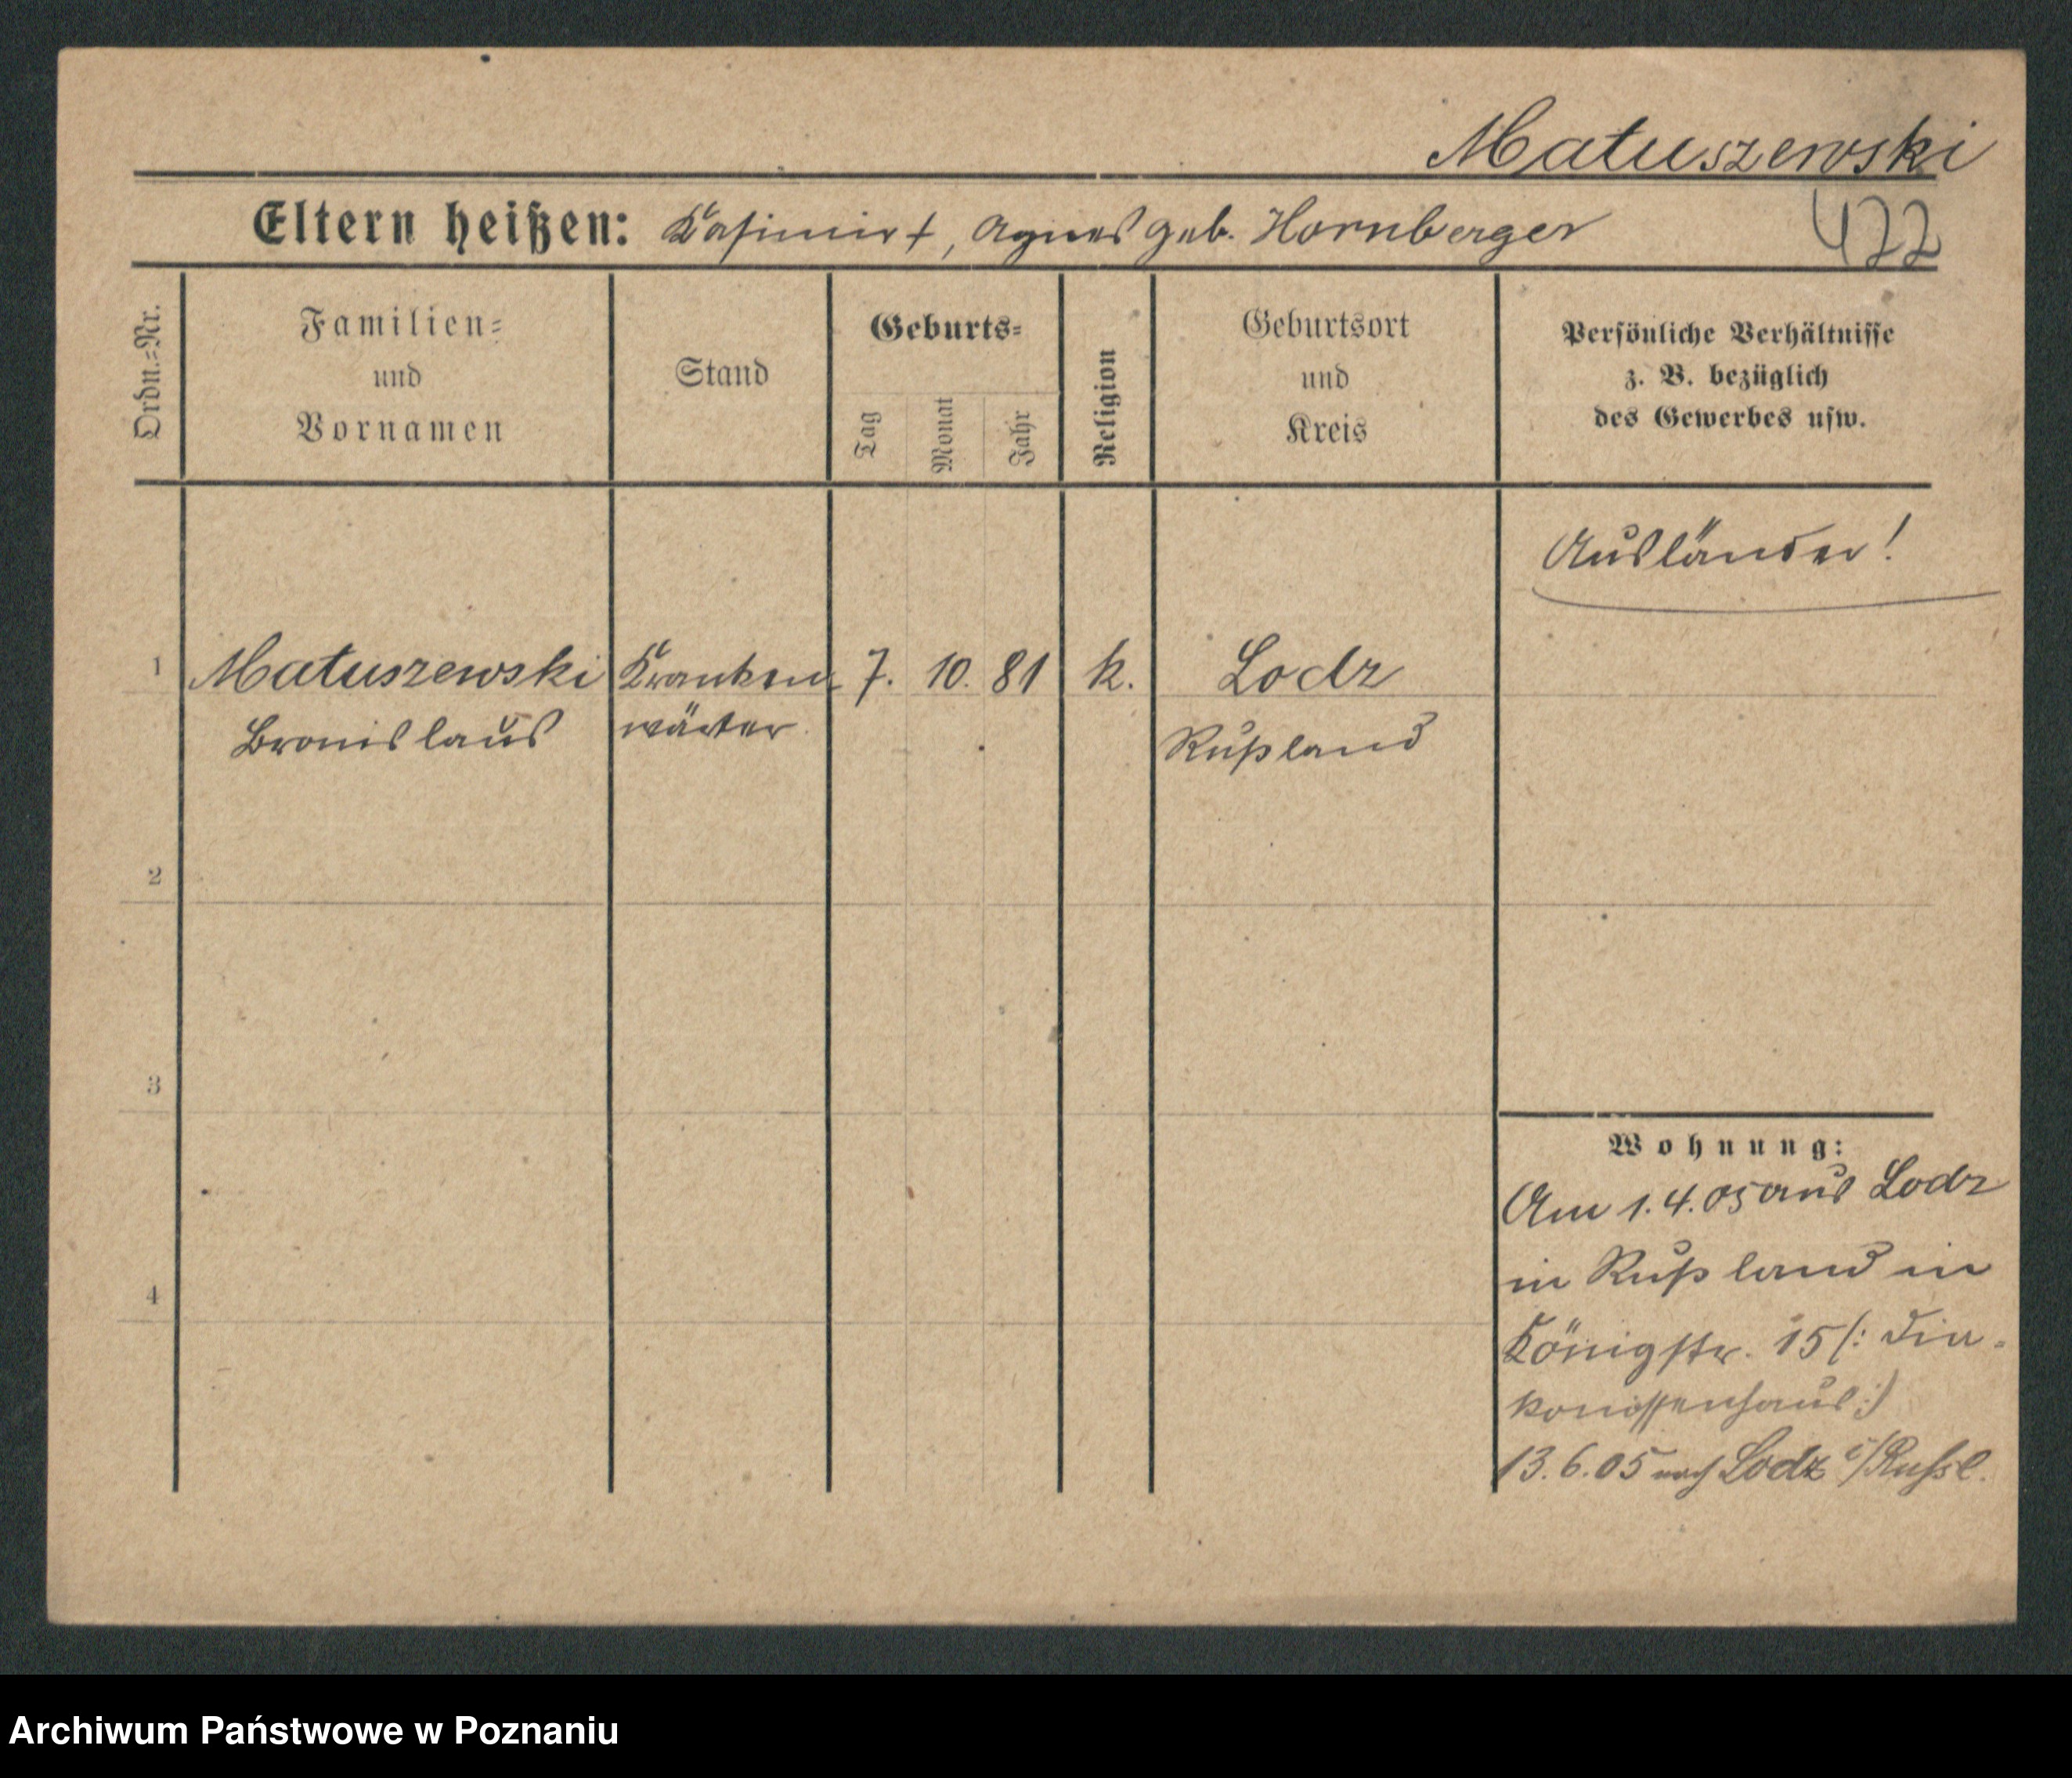 Matuszewski
Eltern heißen: Kasimir †, Agnes geb. Hornberger
477
Ordn.=Nr.
Familien=
und
Vornamen
Stand
Geburts=
Tag
Monat
Jahr
Religion
Geburtsort
und
Kreis
Persönliche Verhältnisse
z. B. bezüglich
des Gewerbes usw.
Ausländer!
1 Matuszewski Kranken- 7. 10. 81 k. Lodz
Bronislaus wärter Rußland
2
3
4
Wohnung:
Am 1.4.05 aus Lodz
in Rußland in
Königstr. 15 (: Dia-
konissenhaus :)
13.6.05 nach Lodz i/Russl.
Archiwum Państwowe w Poznaniu